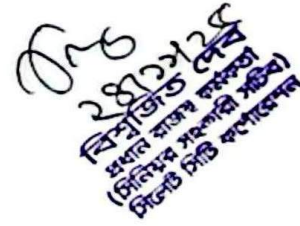 বিশ্বজিত দেব
প্রধান রাজস্ব কর্মকর্তা
(সিনিয়র সহকারী সচিব)
সিলেট সিটি কর্পোরেশন